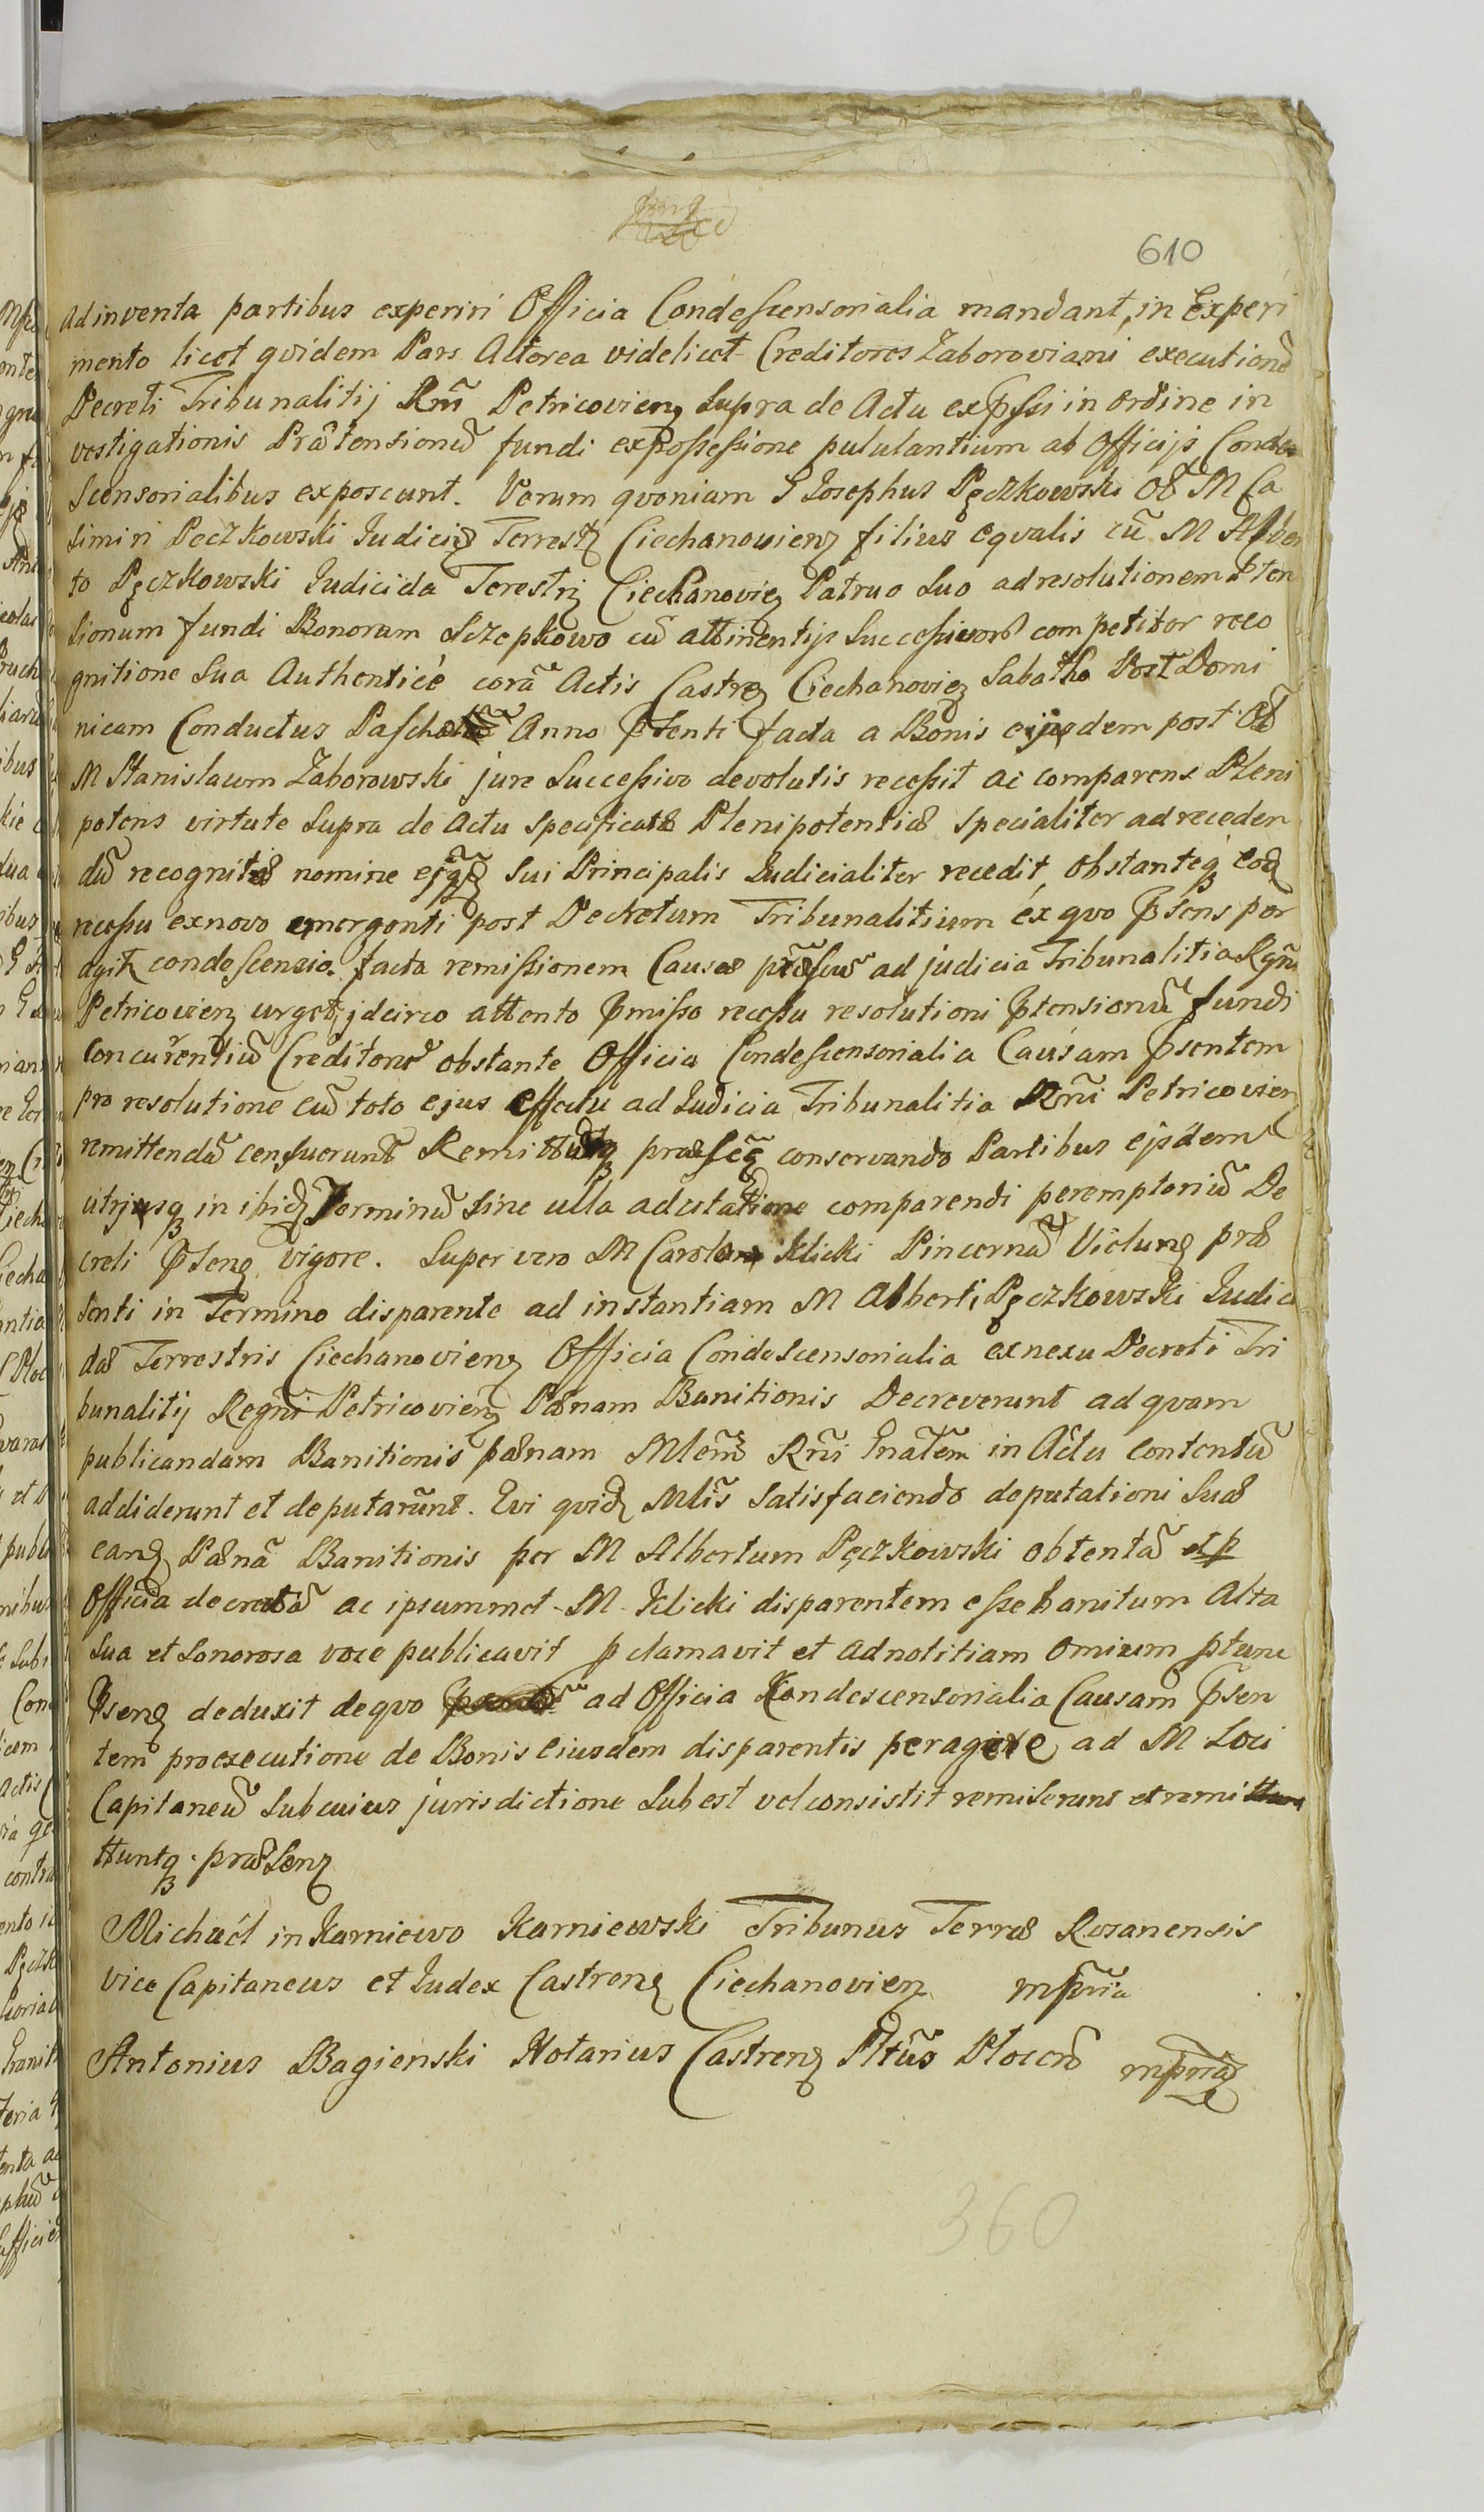 610
adinventa partibus experiri Officia Condescensorialia mandant, in Experi
mento licet qvidem Pars Actorea videlicet Creditores Zaboroviani execution̄e
Decreti Tribunalitij Rn̄i Petricovien̄ supra de Actu exp̄ssi in ordine in
vestigationis Prætensionū fundi expossessione pululantium ab Officijs Conde
scensorialibus exposcunt. Verum qvoniam G Iosephus Pęczkowski Ol̄ M Ca
simiri Peczkowski Iudicis Terrestꝫ Ciechanovienꝫ filius eqvalis cū M Alber
to Pęczkowski Iudicida Terestrꝫ Ciechanovieꝫ Patruo Suo ad resolutionem p̄ten
sionum fundi Bonorum Szczepkowo cū attinentijs Successivorū competitor reco
gnitione Sua Authenticè corā Actis Castreꝫ Ciechanovieꝫ Sabatho Post Domi
nicam Conductus Pascha Anno p̄senti facta a Bonis eijusdem post Ol̄
M Stanislaum Zaborowski jure Successivo devolutis recessit ac comparens Pleni
potens virtute Supra de Actu specificatæ Plenipotentiæ specialiter ad receden
dū recognitæ nomine ejꝫdꝫ sui Principalis Iudicialiter recedit, obstanteqꝫ eodꝫ
recessu exnovo emergenti post Decretum Tribunalitium ex qvo p̄sens per
agitꝫ condescensio facta remissionem Causæ præsēs ad judicia Tribunalitia Rgn̄i
Petricovienꝫ urget, jdcirco attento p̄misso recessu resolutioni p̄tensionū fundi
Concurentiū Creditorū obstante Officia Condescensorialia Causam p̄sentem
pro resolutione cū toto ejus effectu ad Iudicia Tribunalitia Rn̄i Petricovien
remittendā censuerunt Remittuntqꝫ præsēꝫ conservando Partibus ejsdem
utrjusqꝫ in ibidꝫ Terminū sine ulla adcitatione comparendi peremptoriū De
creti p̄senꝫ vigore. Super vero M Carolum Klicki Pincernā Vielunꝫ præ
senti in Termino disparente ad instantiam M Alberti Pęczkowski Iudici
dæ Terrestris Ciechanovienꝫ Officia Condescensorialia ex nexu Decreti Tri
bunalitij Regni Petricovienꝫ Pænam Banitionis Decreverunt ad qvam
publicandam Banitionis pænam Mlem̄ Rn̄i Gn̄alem in Actu contentū
addiderunt et deputarunt. Qvi qvidꝫ Mlis̄ satisfaciendo deputationi suæ
eandꝫ Pænā Banitionis per M Albertum Pęczkowski obtentā et p
Officia decretā ac ipsummet M Klicki disparentem esse banitum Alta
sua et Sonorosa voce publicavit p̄clamavit et ad notitiam omium p̄tunc
p̄senꝫ deduxit deqvo ad Officia Condescensorialia Causam p̄sen
tem pro executione de Bonis eiusdem disparentis peragere ad M Loci
Capitaneū sub cuius jurisdictione Subest vel consistit remiserunt et remi
ttuntqꝫ præsenꝫ
Michaël in Karniewo Karniewski Tribunus Terræ Rosanensis
vice Capitaneus et Iudex Castrenꝫ Ciechanovienꝫ mp̄ria
Antonius Bagienski Notarius Castrenꝫ Pltūs Ploceñ mp̄ria
360